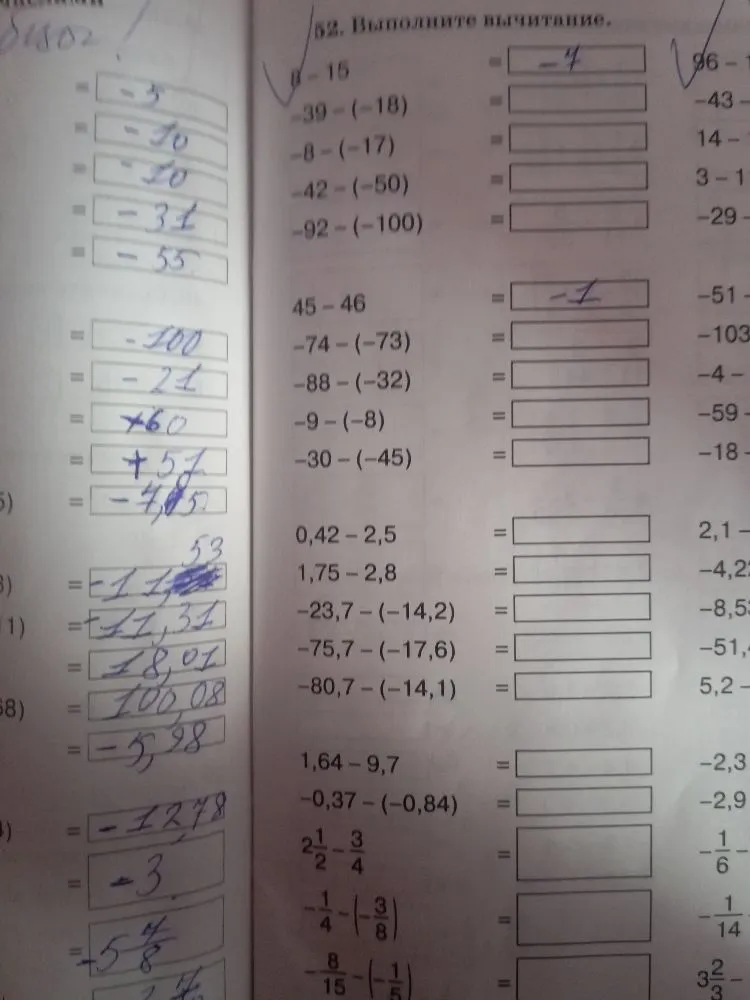 = -5
= -10
= -10
= -31
= -55
= -100
= -21
= +60
= + 57
5) = - 7,15
53
= -11,
11) = -11,31
= 18,01
68) = 100,08
= - 5,98
= - 1278
= - 3
= -5 7/8
52. Выполните вычитание.
8 – 15 = -7
–39 – (–18) =
–8 – (–17) =
–42 – (–50) =
–92 – (–100) =
45 – 46 = -1
–74 – (–73) =
–88 – (–32) =
–9 – (–8) =
–30 – (–45) =
0,42 – 2,5 =
1,75 – 2,8 =
–23,7 – (–14,2) =
–75,7 – (–17,6) =
–80,7 – (–14,1) =
1,64 – 9,7 =
–0,37 – (–0,84) =
2 1/2 – 3/4 =
–1/4 – (–3/8) =
–8/15 – (–1/5) =
96 –
–43 –
14 –
3 – 1
–29 –
–51 –
–103
–4 –
–59 –
–18 –
2,1 –
–4,22
–8,53
–51,4
5,2 –
–2,3
–2,9
–1/6 –
–1/14
3 2/3 –